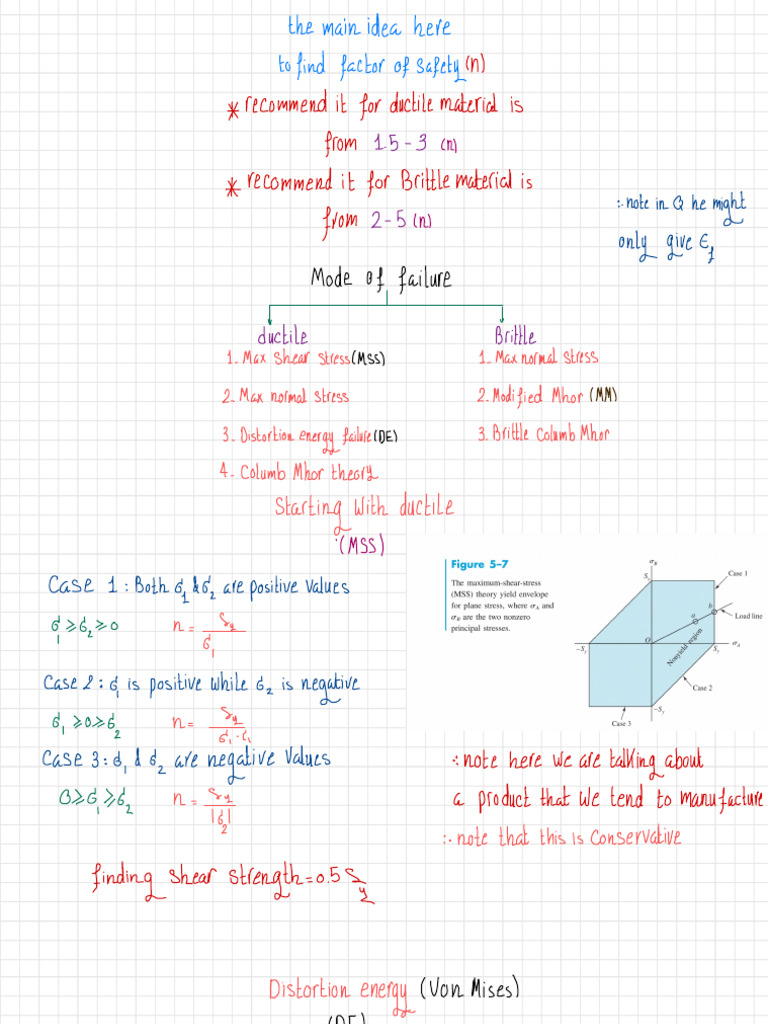 the main idea here
to find factor of safety (n)
* recommend it for ductile material is
from 1.5 - 3 (n)
* recommend it for Brittle material is
from 2 - 5 (n)
∴ note in Q he might
only give ϵf
Mode of failure
ductile
1. Max shear stress (MSS)
2. Max normal stress
3. Distortion energy failure (DE)
4. Columb Mhor theory
Brittle
1. Max normal stress
2. Modified Mhor (MM)
3. Brittle Columb Mhor
Starting with ductile
(MSS)
Case 1 : Both σ1 & σ2 are positive values
σ1 ≥ σ2 ≥ 0 n = Sy / σ1
Case 2 : σ1 is positive while σ2 is negative
σ1 ≥ 0 ≥ σ2 n = Sy / σ1 - σ1
Case 3 : σ1 & σ2 are negative values
0 ≥ σ1 ≥ σ2 n = Sy / |σ2|
finding shear strength = 0.5 Sy
Figure 5–7
The maximum-shear-stress
(MSS) theory yield envelope
for plane stress, where σA and
σB are the two nonzero
principal stresses.
σB
Sy
Case 1
b
a
Load line
O
–Sy
Sy
σA
Nonyield region
Case 2
–Sy
Case 3
∴ note here we are talking about
a product that we tend to manufacture
∴ note that this is Conservative
Distortion energy (Von Mises)
(DE)